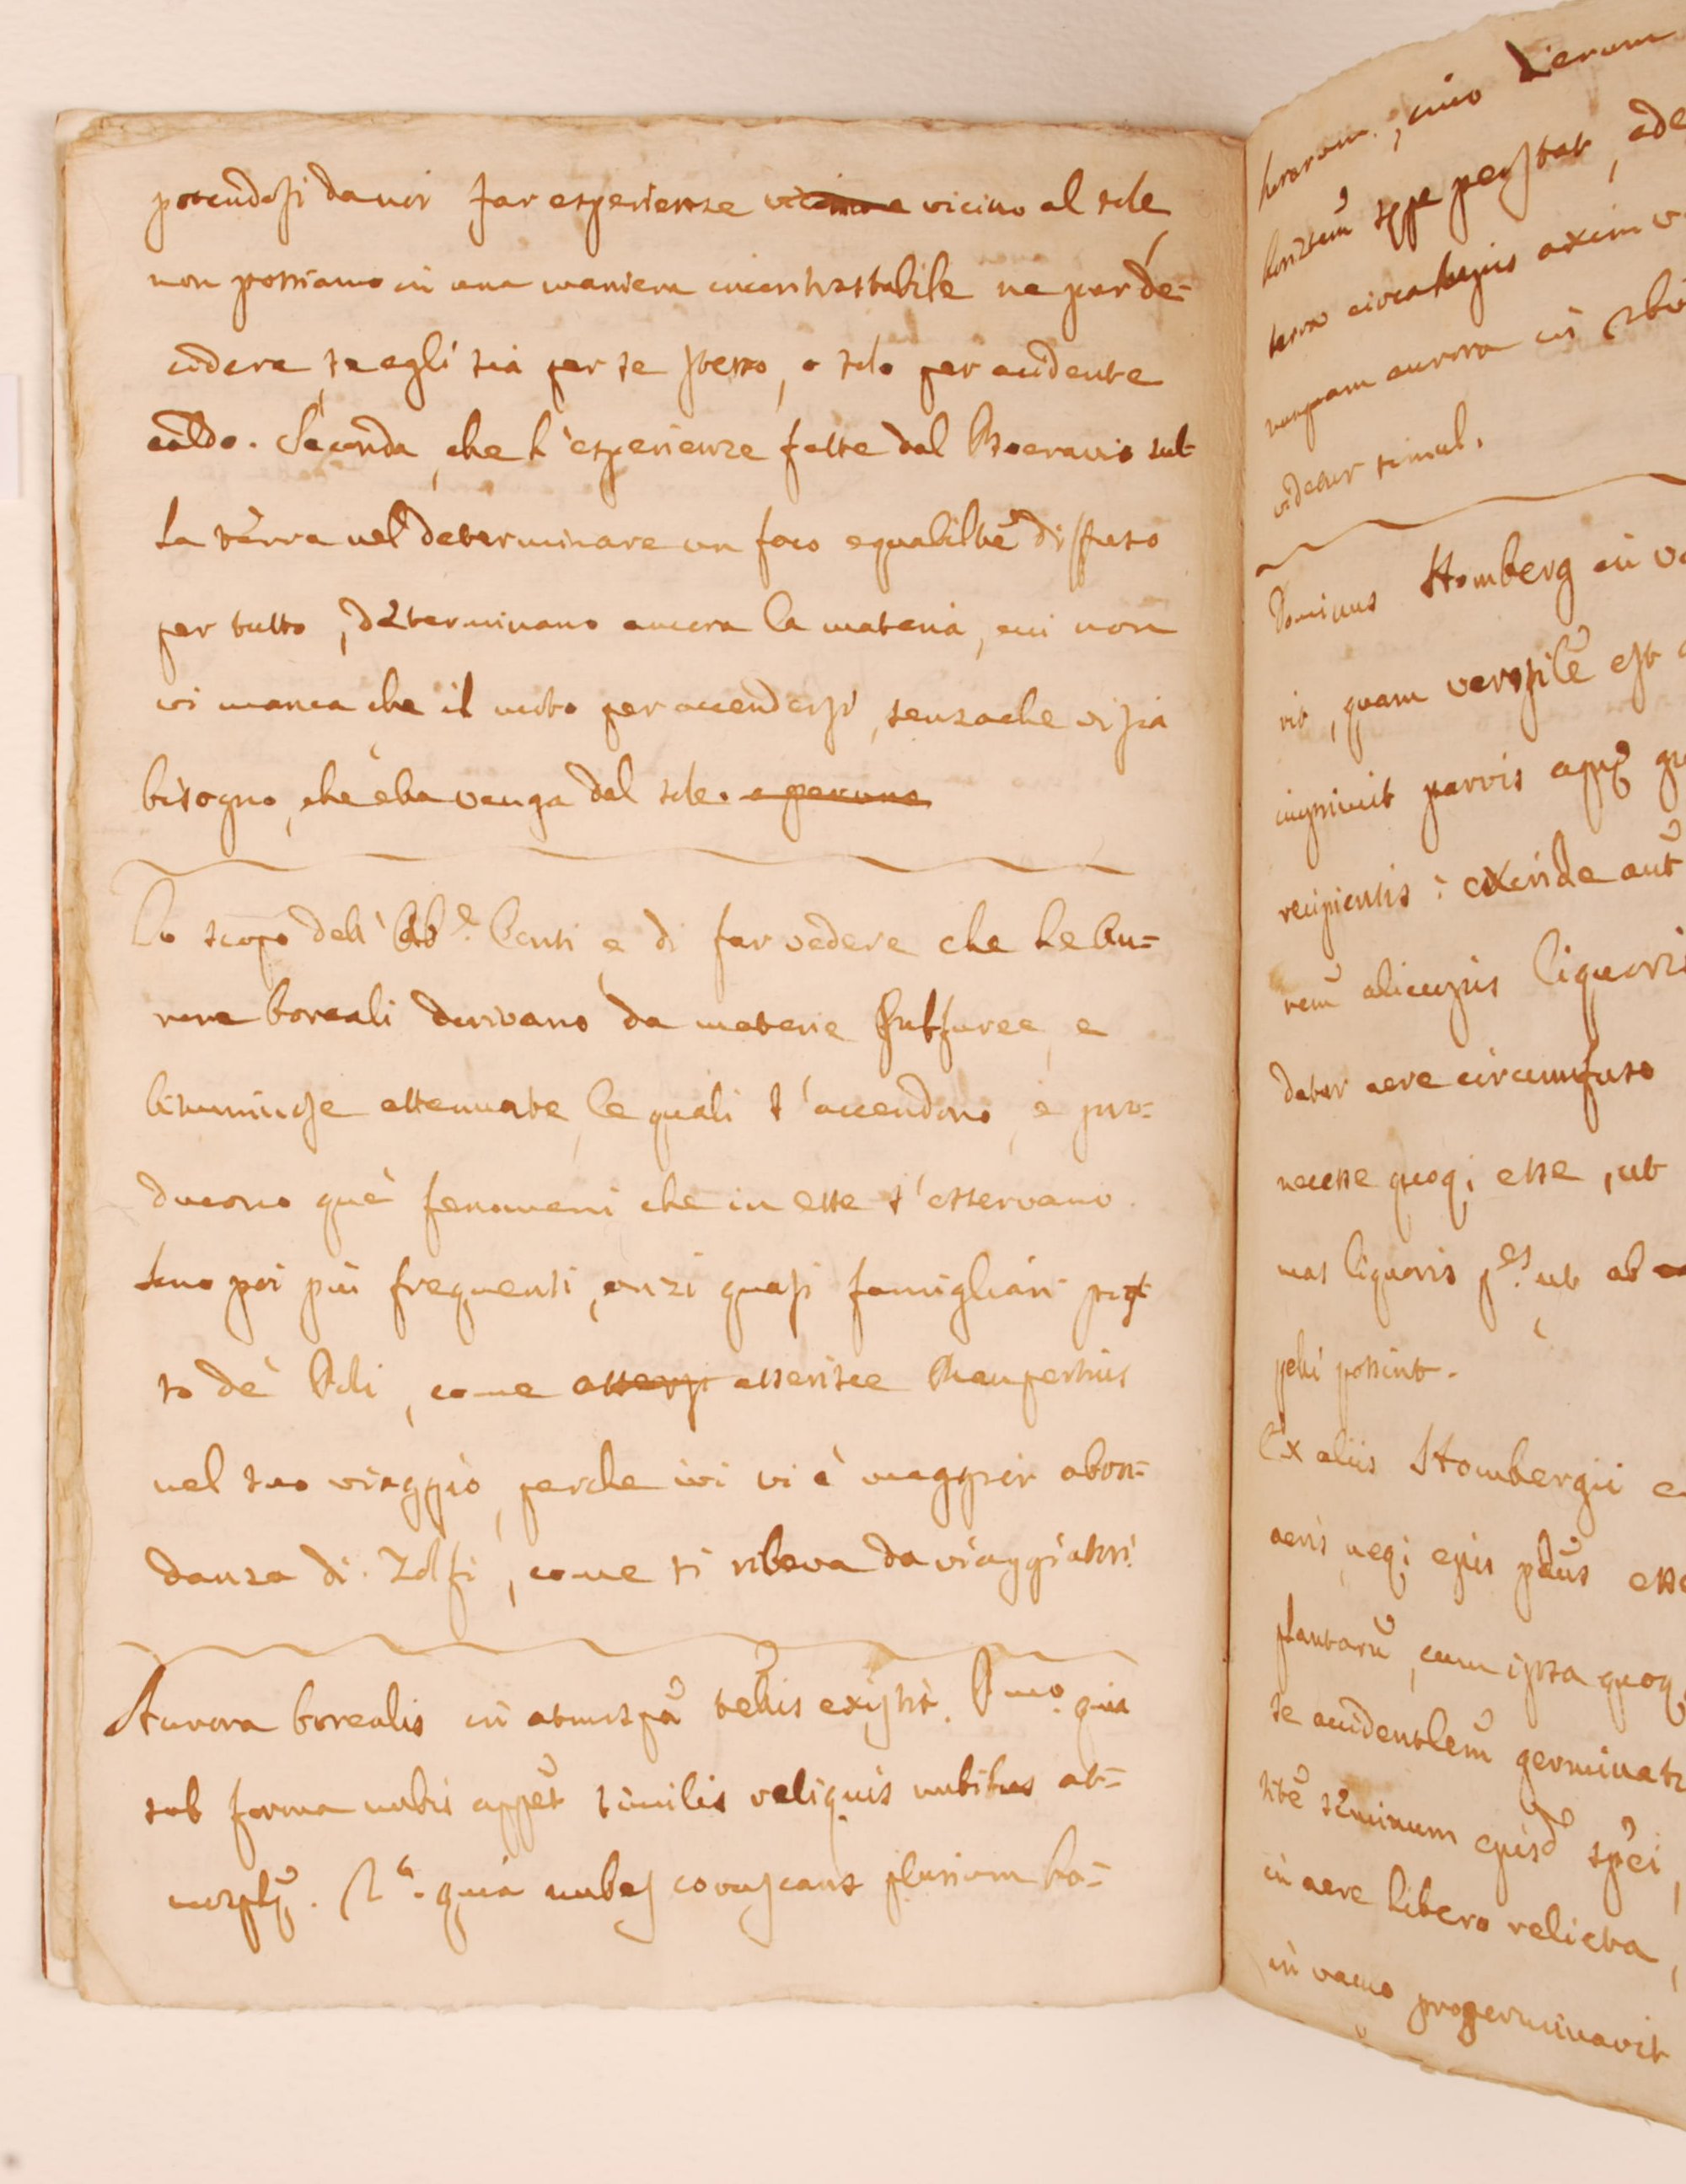 potendosi da noi far esperienze vicino a vicino al sole
non possiamo in una maniera incontrastabile ne pur de=
cidere, se egli sia per se stesso, o solo per accidente
caldo. Seconda, che l'esperienze fatte dal Boeravio sul=
la terra nel determinare un foco egualilte diffuso
per tutto, determinano ancora la materia, cui non
vi manca che il moto per accendersi, senza che vi sia
bisogno, che ella venga dal sole.
Lo scopo dell' Ab.e Conti e di far vedere che le Au=
rore boreali derivano da materie sulfuree, e
bituminose attenuate, le quali s'accendono, e pro=
ducono que' fenomeni che in esse s'osservano.
Sono poi più frequenti, anzi quasi famigliari sot
to de' Poli, come asserisce Maupertuis
nel suo viaggio, perche ivi vi è maggior abon=
danza di Zolfi, come si rileva da viaggiatori.
Aurora borealis in atmosfa telluris existit. Pmo. quia
sub forma nubis appet similis reliquis nubibus at=
mosphę. 2a. quia nubes coruscans plurium ho=
horarum, imo dierum
horizem sępe perstat, ade
terra circa hujus axim v
nunquam aurora in
videtur simul.
Dominus Homberg in va
vit, quam versile est
imprimit parvis aquę gu
recipientis: exinde aut
rem alicujus liquoris
datur aere circumfuso
necesse quoq; esse, ut
mas liquoris p.es ut ab
pelli possint.
Ex aliis Hombergii e
aeris neq; ejus pus esse
plantaru, cum ipsa quoq
se accidentlem germinat
site seminum ejusd spei,
in aere libero relicta,
in vacuo progerminavit